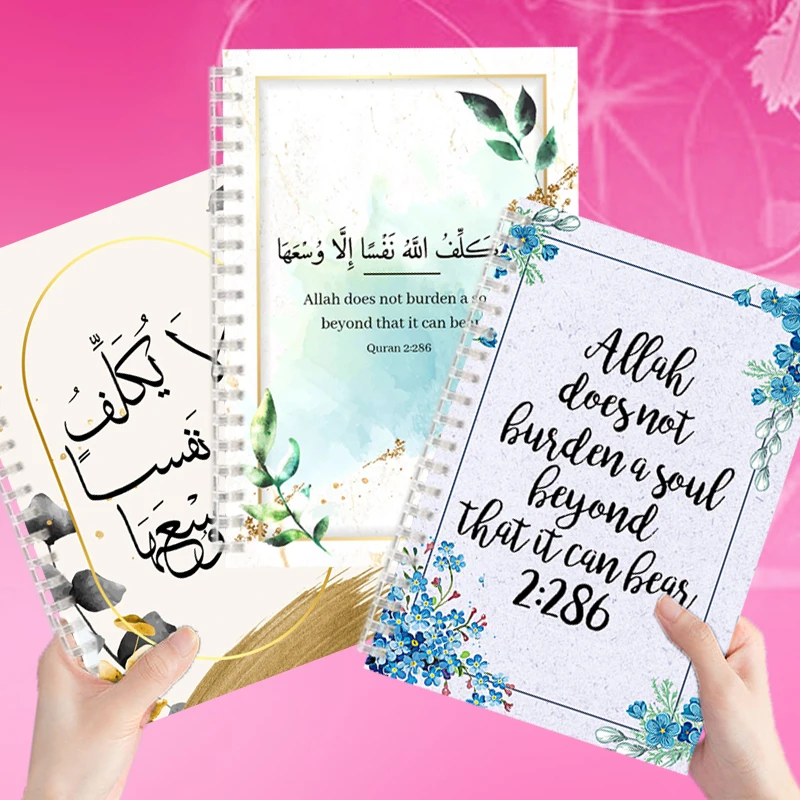 لَا
يُكَلِّفُ
نَفْسًا
وُسْعَهَا
يُكَلِّفُ اللَّهُ نَفْسًا إِلَّا وُسْعَهَا
Allah does not burden a so
beyond that it can bear
Quran 2:286
Allah
does not
burden a soul
beyond
that it can bear
2:286